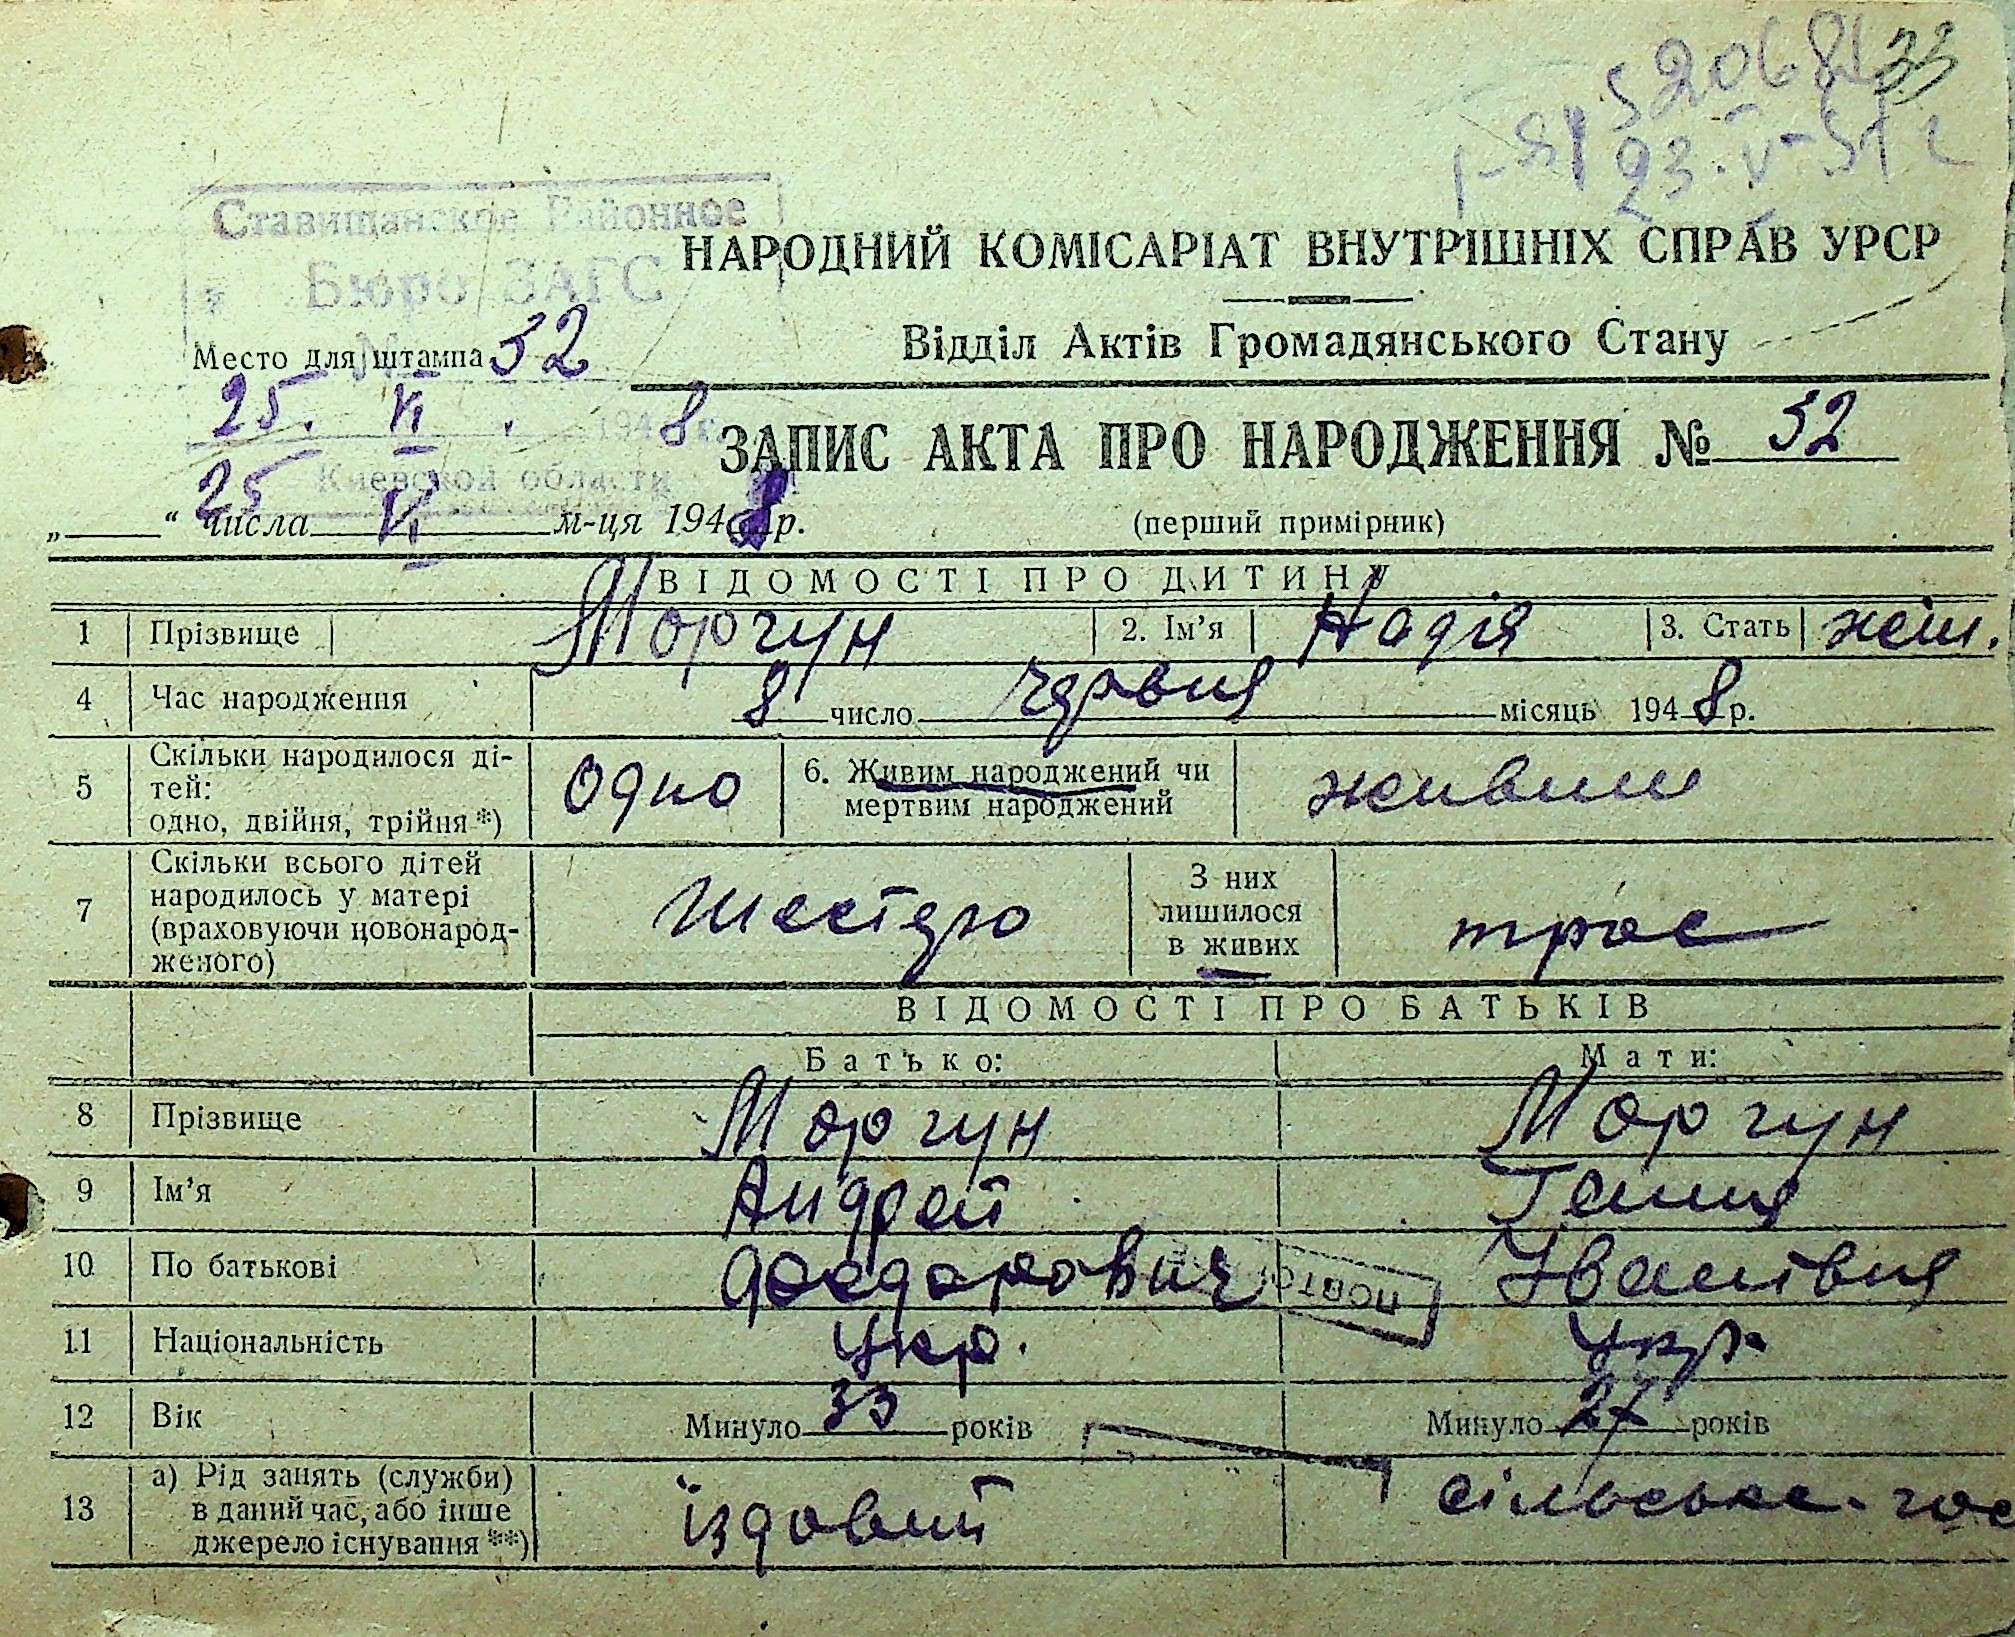 33
23.V-51
Ставищанское Районное
Бюро ЗАГС
НАРОДНИЙ КОМІСАРІАТ ВНУТРІШНІХ СПРАВ УРСР
Відділ Актів Громадянського Стану
Место для штампа 52
25. VI. 1948 г.
Киевской области
ЗАПИС АКТА ПРО НАРОДЖЕННЯ № 52
„ 25 “ числа VI м-ця 1948 р.
(перший примірник)
ВІДОМОСТІ ПРО ДИТИНУ
1 Прізвище Моргун 2. Ім’я Надія 3. Стать жін.
4 Час народження 8 число червня місяць 1948 р.
5 Скільки народилося ді-
тей:
одно, двійня, трійня*) Одно
6. Живим народжений чи
мертвим народжений живим
7 Скільки всього дітей
народилось у матері
(враховуючи новонарод-
женого) шестеро
З них
лишилося
в живих троє
ВІДОМОСТІ ПРО БАТЬКІВ
Батько: Мати:
8 Прізвище Моргун Моргун
9 Ім’я Андрей Ганна
10 По батькові Феодорович Іванівна
11 Національність Укр. Укр.
12 Вік Минуло 33 років Минуло 27 років
13 а) Рід занять (служби)
в даний час, або інше
джерело існування**) їздовий сільське-гос